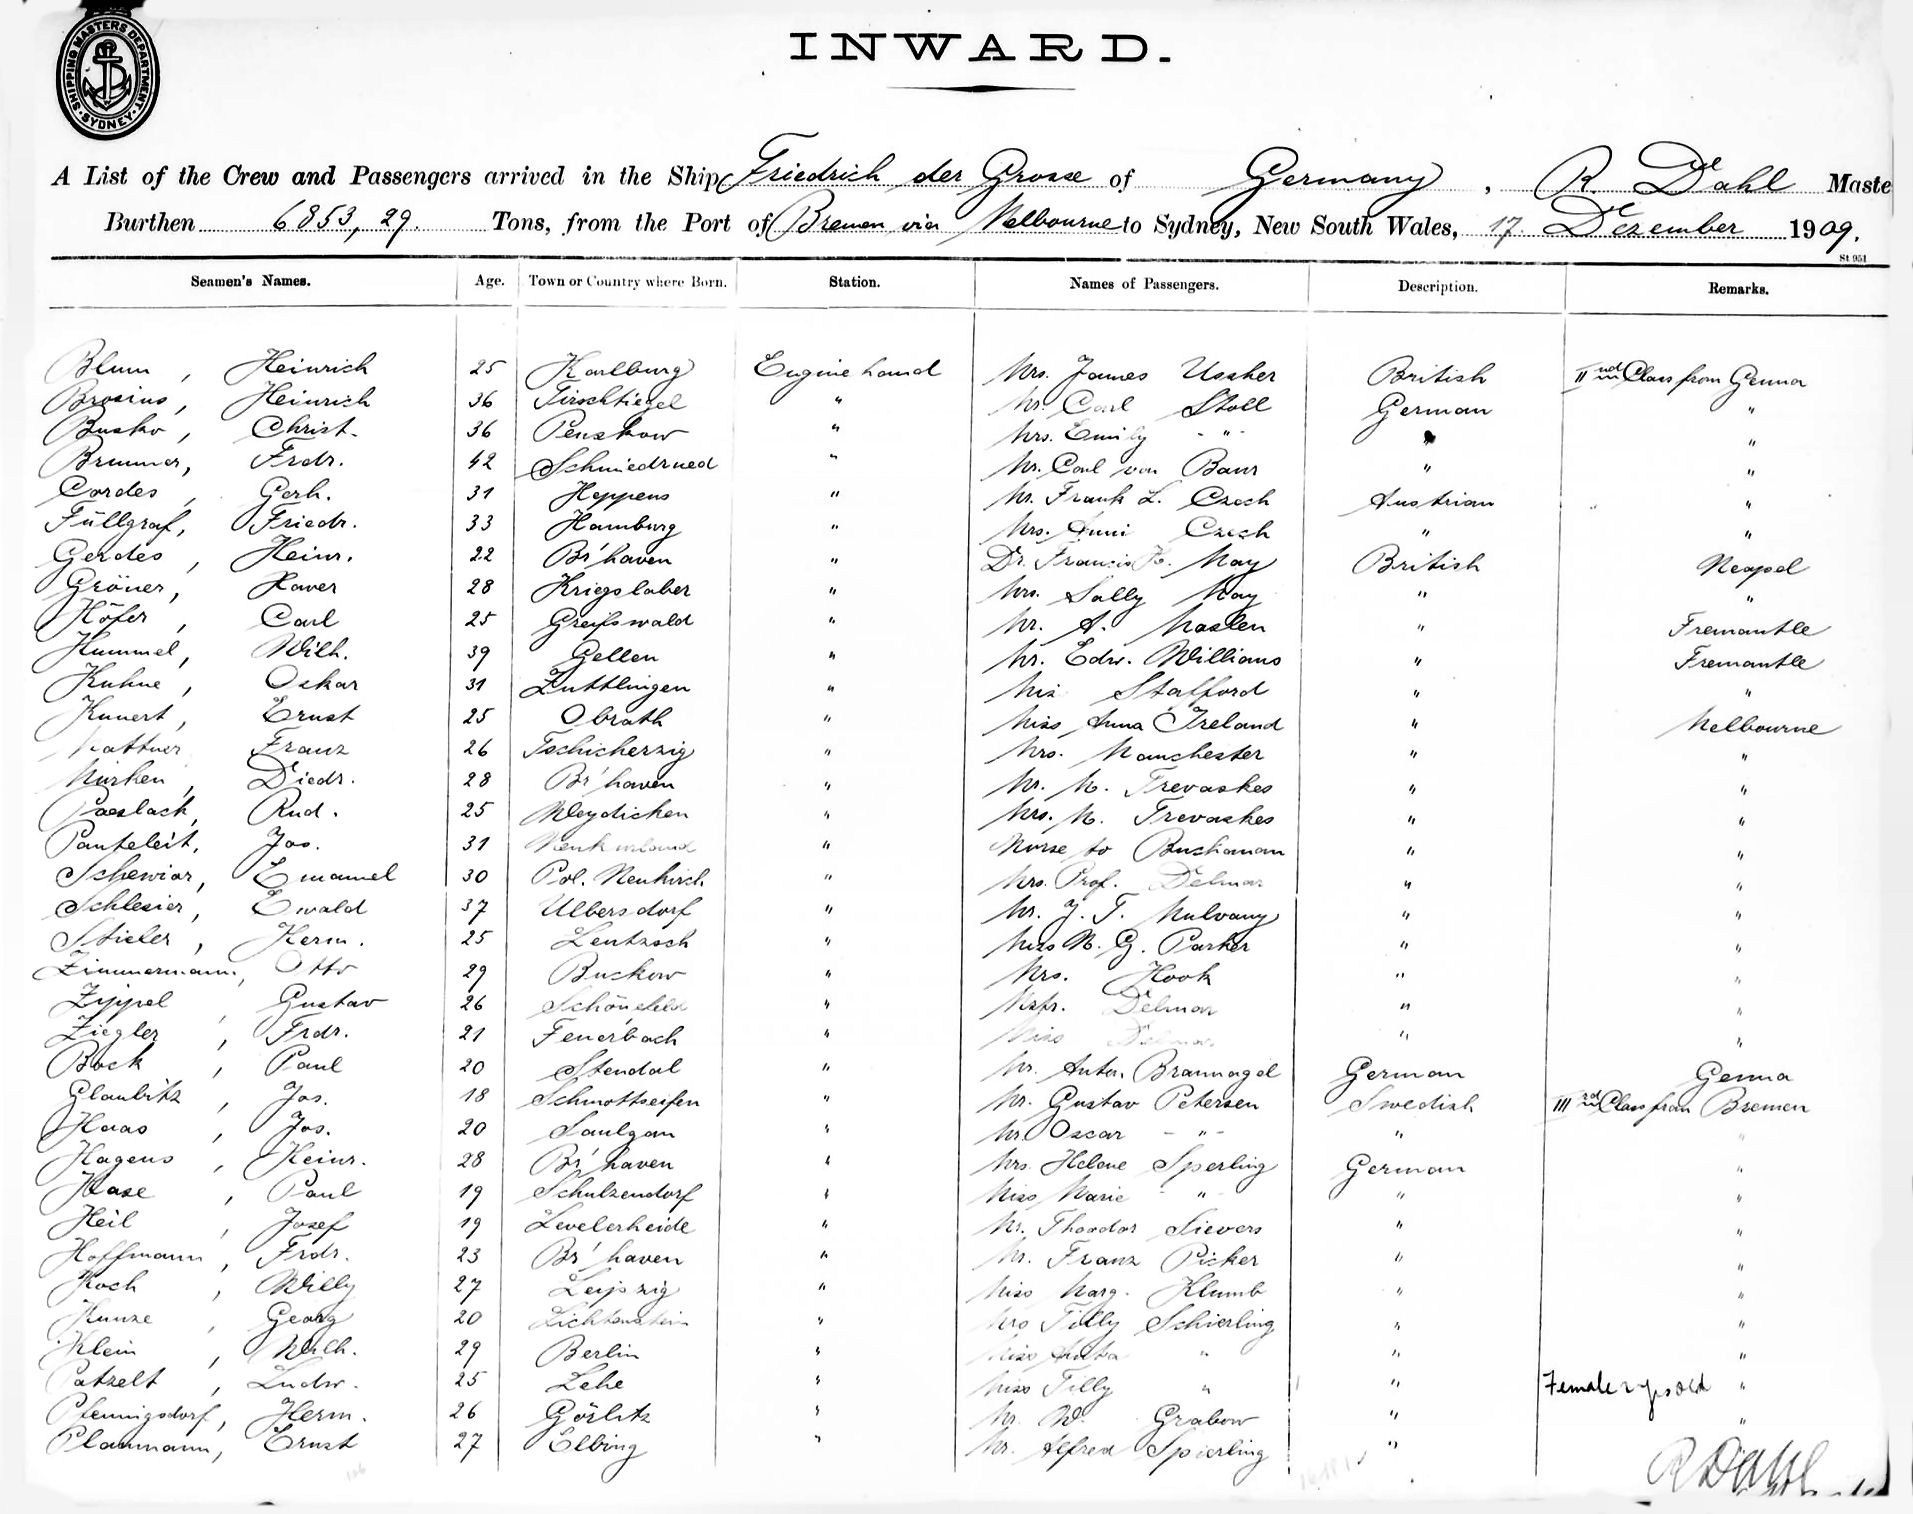 SHIPPING MASTERS DEPARTMENT · SYDNEY ·
INWARD.
A List of the Crew and Passengers arrived in the Ship Friedrich der Grosse of Germany, R. Dahl Maste
Burthen 6853,29. Tons, from the Port of Bremen via Melbourne to Sydney, New South Wales, 17. Dezember 1909.
St 951
Seamen's Names. Age. Town or Country where Born. Station. Names of Passengers. Description. Remarks.
Blum, Heinrich 25 Karlburg Enginehand Mrs. James Ussher British IInd Class from Genua
Brosius, Heinrich 36 Tirschtiegel " Mr. Carl Stoll German "
Busko, Christ. 36 Penskow " Mrs. Emily - " - " "
Brummer, Frdr. 42 Schmiedrued " Mr. Carl von Baur " "
Cordes, Gerh. 31 Heppens " Mr. Frank L. Czech Austrian "
Füllgraf, Friedr. 33 Hamburg " Mrs. Anni Czech " "
Gerdes, Heinr. 22 Br'haven " Dr. Francis H. May British Neapel
Gröner, Xaver 28 Kriegslaber " Mrs. Sally May " "
Höfer, Carl 25 Greifswald " Mr. A. Maslen " Fremantle
Hummel, Wilh. 39 Gellen " Mr. Edw. Williams " Fremantle
Kuhne, Oskar 31 Tuttlingen " Stafford " "
Kunert, Ernst 25 Obrath " Miss Anna Ireland " Melbourne
Mattner Franz 26 Tschicherzig " Mrs. Manchester " "
Diedr. 28 Br'haven " Mr. M. Trevaskes " "
Paeslack, Rud. 25 Weydicken " Mrs. M. Trevaskes " "
Panteleit, Jos. 31 " Nurse to Buchanan " "
Schewior, Emanuel 30 Pol. Neukirch " Mrs. Prof. Delmar " "
Schlesier, Ewald 37 Ulbersdorf " Mr. J. T. Mulvany " "
Stieler, Herm. 25 Leutzsch " Miss M. G. Parker " "
Zimmermann, Otto 29 Buckow " Mrs. Hook " "
Zippel, Gustav 26 Schönefeld " Mstr. Delmar " "
Ziegler, Frdr. 21 Feuerbach " Miss Delmar " "
Bock, Paul 20 Stendal " Mr. Anton Brannagel German Genua
Glaubitz, Jos. 18 Schmottseifen " Mr. Gustav Petersen Swedish IIIrd Class from Bremen
Haas, Jos. 20 Saulgau " Mr. Oscar - " - " "
Hagens, Heinr. 28 Br'haven " Mrs. Helene Sperling German "
Hase, Paul 19 Schulzendorf " Miss Marie " " "
Heil, Josef 19 Levelerheide " Mr. Theodor Sievers " "
Hoffmann, Frdr. 23 Br'haven " Mr. Franz Picker " "
Koch, Willy 27 Leipzig " Miss Marg. Klumb " "
Kunze, Georg 20 Lichtenstein " Mrs Tilly Schierling " "
Klein, Wilh. 29 Berlin " Miss Anita " " "
Patzelt, Ludw. 25 Lehe " Miss Tilly " " Female 2 yrs old "
Pfennigsdorf, Herm. 26 Görlitz " Mr. W. Grabow " "
Plaumann, Ernst 27 Elbing " Mr. Alfred Spierling "
R Dahl